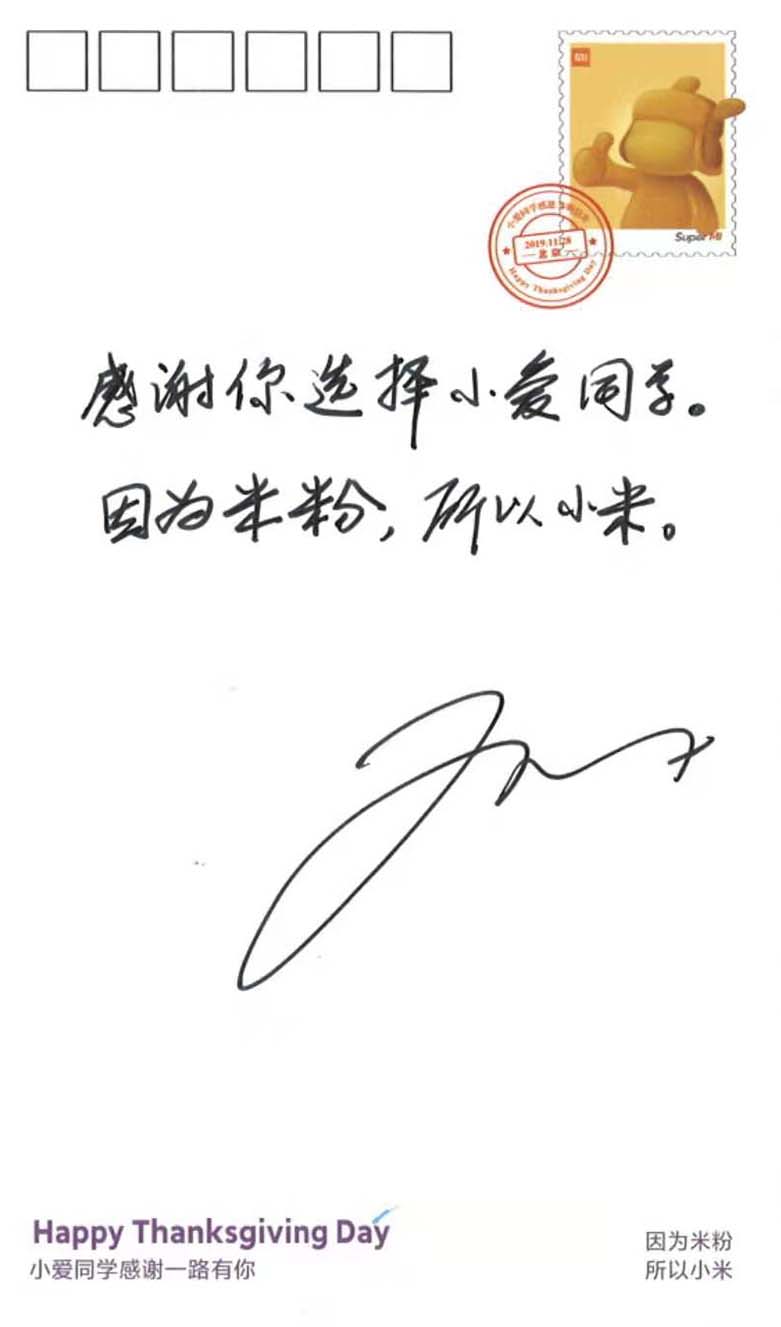 MI
Super MI
2019.11.28
北京
Happy Thanksgiving Day
感谢你选择小爱同学。
因为米粉，所以小米。
Happy Thanksgiving Day
小爱同学感谢一路有你
因为米粉
所以小米